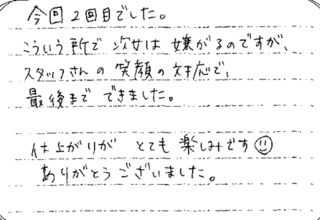 今回2回目でした。
こういう所で次女は嫌がるのですが、
スタッフさんの笑顔の対応で、
最後までできました。
仕上がりがとても楽しみです☺
ありがとうございました。